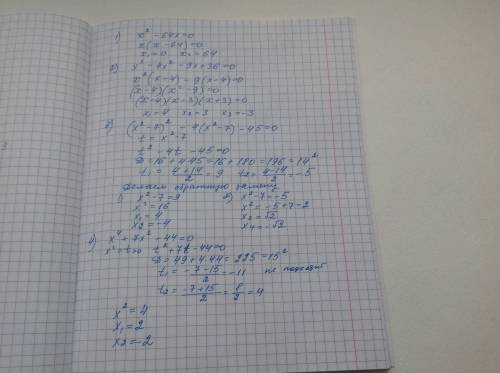 1) x² - 64x = 0
x(x - 64) = 0
x₁ = 0 x₂ = 64
2) x³ - 4x² - 9x + 36 = 0
x²(x - 4) - 9(x - 4) = 0
(x - 4)(x² - 9) = 0
(x - 4)(x - 3)(x + 3) = 0
x₁ = 4 x₂ = 3 x₃ = -3
3) (x² - 7)² - 4(x² - 7) - 45 = 0
t = x² - 7
t² - 4t - 45 = 0
D = 16 + 4·45 = 16 + 180 = 196 = 14²
t₁ = (4 + 14)/2 = 9 t₂ = (4 - 14)/2 = -5
Делаем обратную замену
1) x² - 7 = 9 2) x² - 7 = -5
x² = 16 x² = -5 + 7 = 2
x₁ = 4 x₃ = √2
x₂ = -4 x₄ = -√2
4) x⁴ + 7x² - 44 = 0
x² = t ≥ 0 t² + 7t - 44 = 0
D = 49 + 4·44 = 225 = 15²
t₁ = (-7 - 15)/2 = -11 не подходит
t₂ = (-7 + 15)/2 = 8/2 = 4
x² = 4
x₁ = 2
x₂ = -2